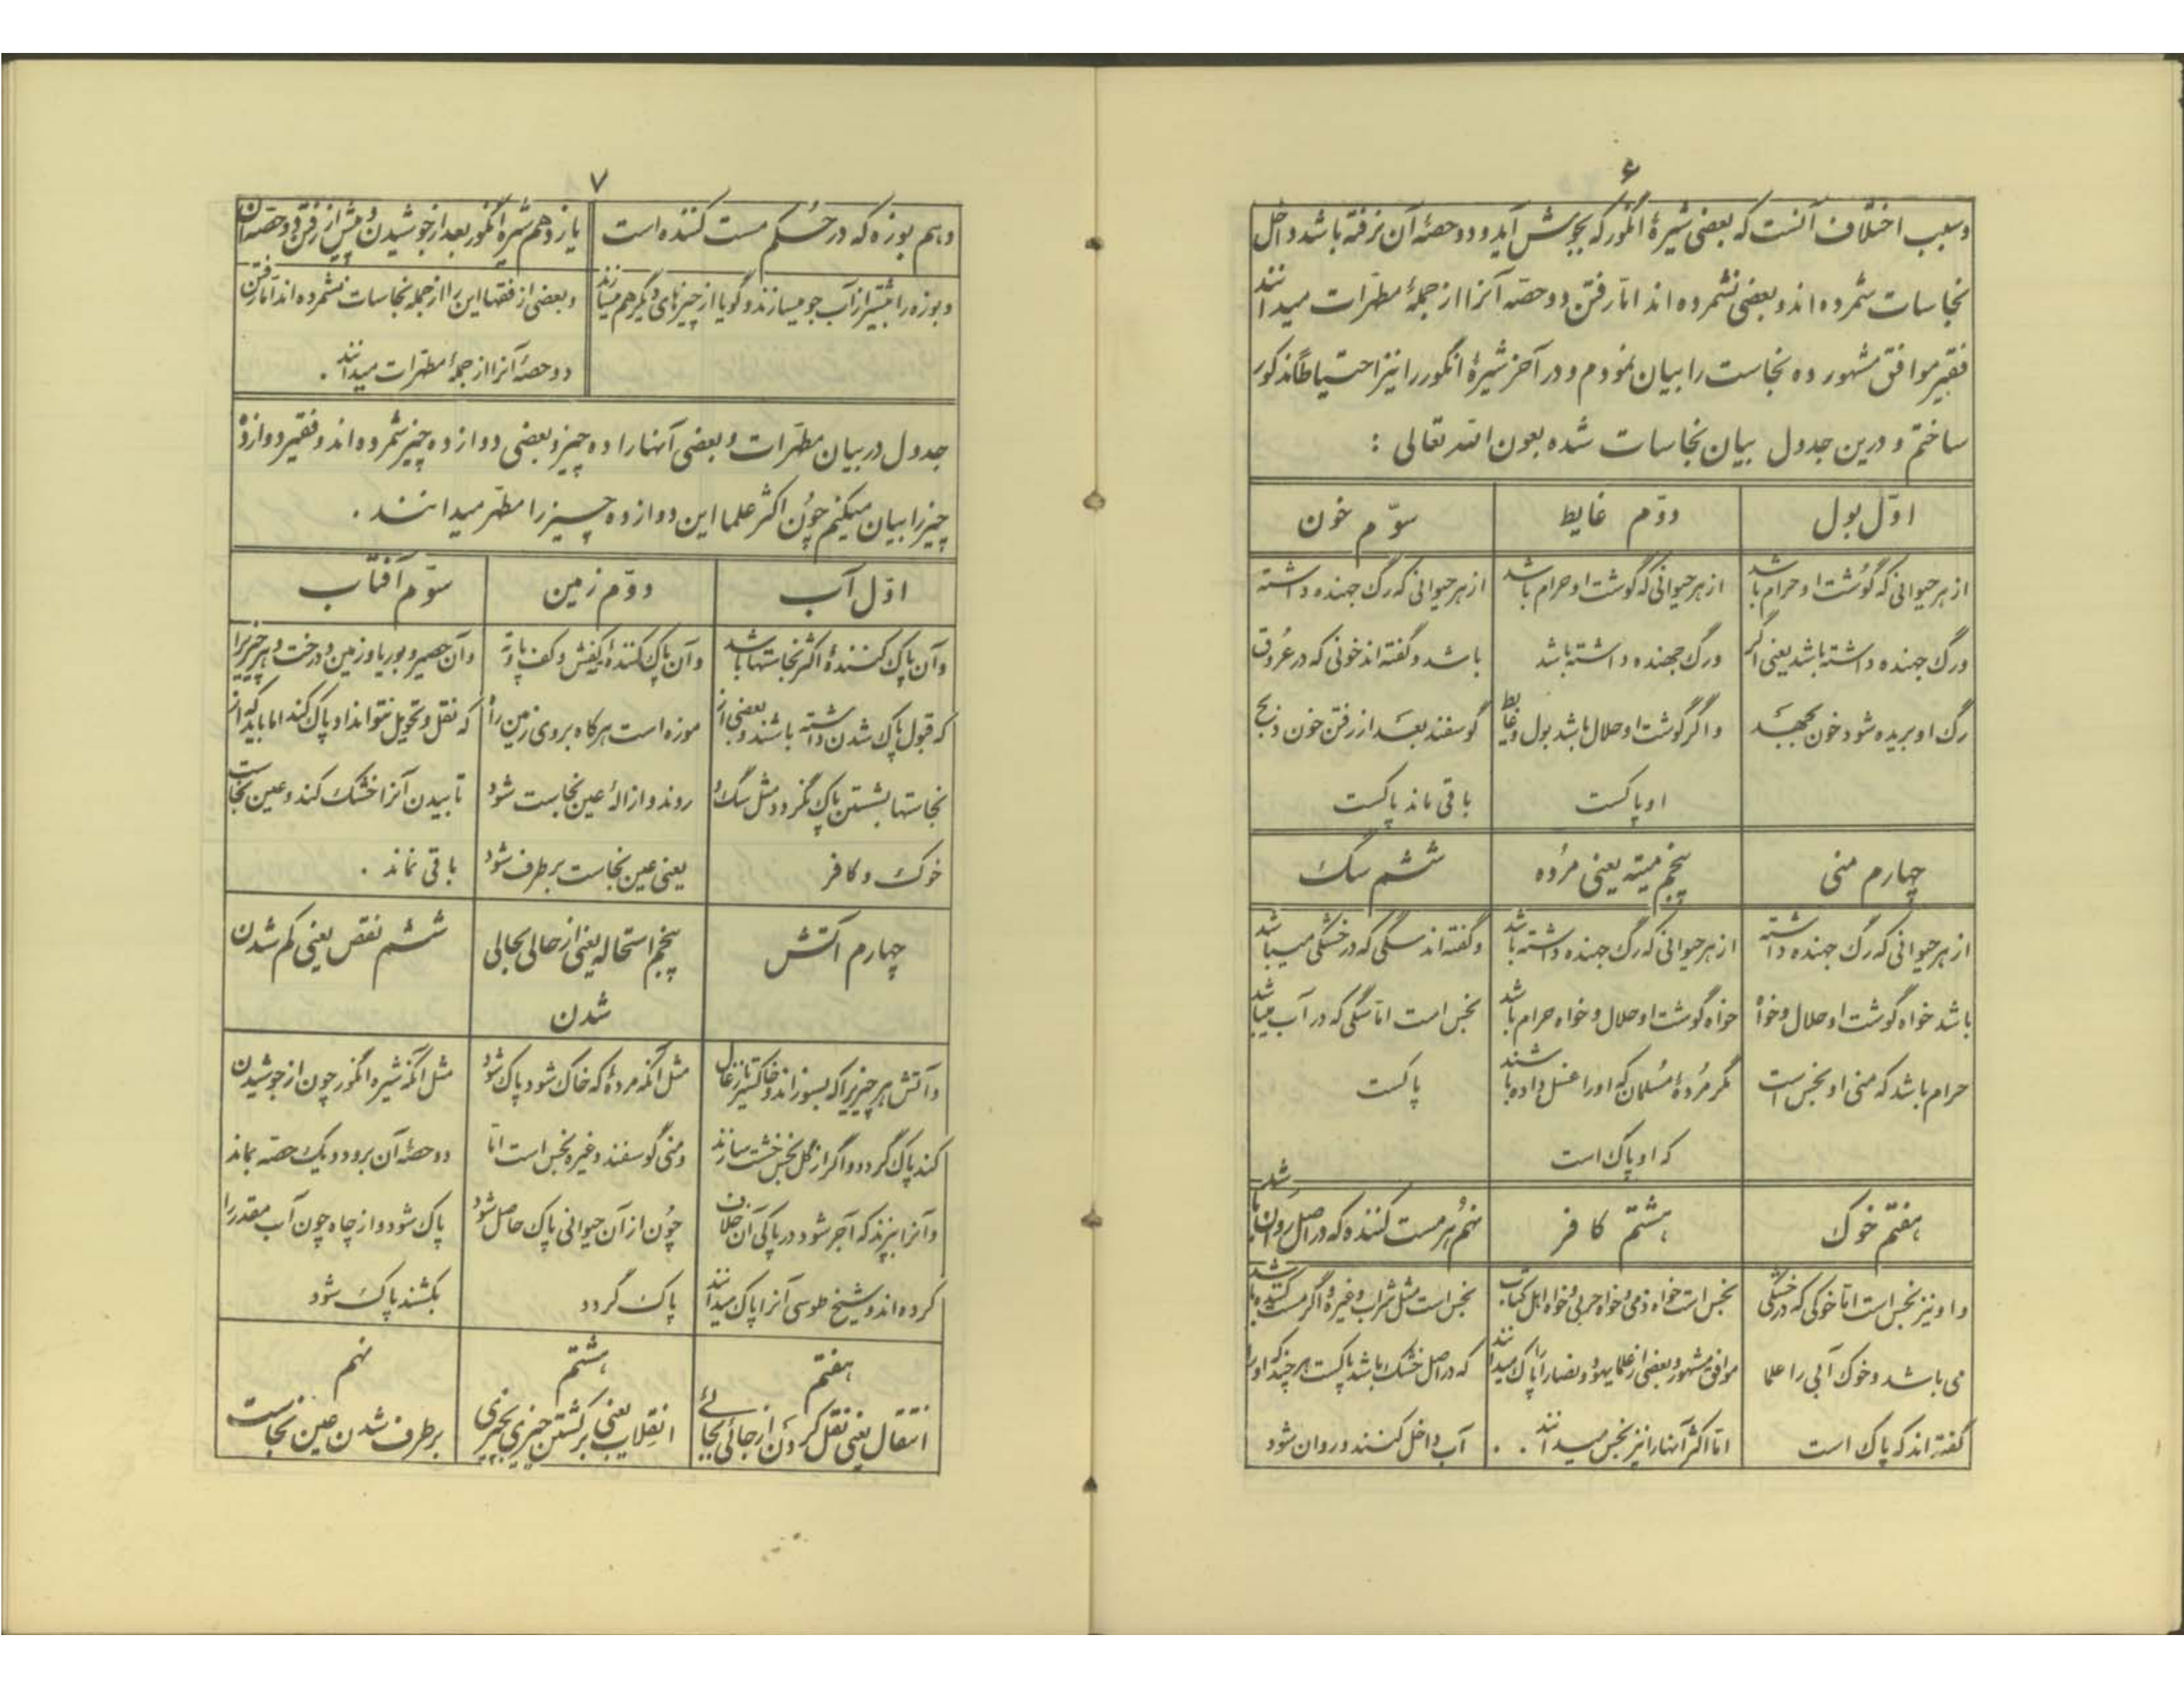 ۶
وسبب اختلاف آنست که بعضی شیرهٔ انگور که بجوش آید و دو حصهٔ آن نرفته باشد داخل
نجاسات شمرده اند و بعضی نشمرده اند امّا رفتن دو حصّه آنرا از جملهٔ مطهّرات میدانند
فقیر موافق مشهور ده نجاست را بیان نمودم و در آخر شیرهٔ انگور را نیز احتیاطاً مذکور
ساختم و درین جدول بیان نجاسات شده بعون الله تعالی :
اوّل بول
از هر حیوانی که گوشت او حرام باشد
و رگ جهنده داشته باشد یعنی اگر
رگ او بریده شود خون بجهد
دوّم غایط
از هر حیوانی که گوشت او حرام باشد
و رگ جهنده داشته باشد
و اگر گوشت او حلال باشد بول و غایط
او پاکست
سوّم خون
از هر حیوانی که رگ جهنده داشته
باشد و گفته اند خونی که در عُروق
گوسفند بعد از رفتن خون ذبح
باقی ماند پاکست
چهارم منی
از هر حیوانی که رگ جهنده داشته
باشد خواه گوشت او حلال و خواه
حرام باشد که منی او نجس است
پنجم میته یعنی مُرده
از هر حیوانی که رگ جهنده داشته باشد
خواه گوشت او حلال و خواه حرام باشد
مگر مُردهٔ مُسلمان که او را غسل داده باشند
که او پاک است
ششم سگ
و گفته اند سگی که در خشکی میباشد
نجس است امّا سگی که در آب میباشد
پاکست
هفتم خوک
و او نیز نجس است امّا خوکی که در خشکی
می باشد و خوک آبی را علما
گفته اند که پاک است
هشتم کافر
نجس است خواه ذمی و خواه حربی و خواه اهل کتاب
موافق مشهور و بعضی از علما یهود و نصارا را پاک میدانند
امّا اکثر آنها را نیز نجس میدانند . .
نهم هر مست کننده که در اصل روان باشد
نجس است مثل شراب و غیره و اگر مست کننده باشد
که در اصل خشک باشد پاکست هر چند که او را
آب داخل کنند و روان شود
۷
دهم بوزه که در حُکم مست کننده است
و بوزه را بیشتر از آب جو میسازند و گویا از چیزهای دیگر هم میسازند
یازدهم شیره انگور بعد از جوشیدن و پیش از رفتن دو حصّه آن
و بعضی از فقها این را از جمله نجاسات نشمرده اند امّا رفتن
دو حصّهٔ آنرا از جملهٔ مطهّرات میدانند .
جدول در بیان مطهّرات و بعضی آنها را ده چیز و بعضی دوازده چیز شمرده اند و فقیر دوازده
چیز را بیان میکنم چُون اکثر علما این دوازده چیز را مطهّر میدانند .
اوّل آب
و آن پاک کنندهٔ اکثر نجاستها باشد
که قبول پاک شدن داشته باشند و بعضی از
نجاستها بشستن پاک نگردد مثل سگ و
خوک و کافر
دوّم زمین
و آن پاک کنندهٔ کفش و کف پا و ته
موزه است هرگاه بروی زمین راه
روند و ازالهٔ عین نجاست شود
یعنی عین نجاست برطرف شود
سوّم آفتاب
و آن حصیر و بوریا و زمین و درخت و هر چیزیرا
که نقل و تحویل نتوانداد پاک کند اما باید که از
تابیدن آنرا خشک کند و عین نجاست
باقی نماند .
چهارم آتش
و آتش هر چیزیرا که بسوزاند و خاکستر یا زغال
کند پاک گردد و اگر از گِل نجس خشت سازند
و آنرا بپزند که آجر شود در پاکی آن خلاف
کرده اند و شیخ طوسی آنرا پاک میدانند
پنجم استحاله یعنی از حالی بحالی
شدن
مثل آنکه مردهٔ که خاک شود پاک شود
و منی گوسفند و غیره نجس است امّا
چُون از آن حیوانی پاک حاصل شود
پاک گردد
ششم نقص یعنی کم شدن
مثل آنکه شیره انگور چون از جوشیدن
دو حصّهٔ آن برود و یک حصّه بماند
پاک شود و از چاه چون آب مقدر را
بکشند پاک شود
هفتم
انتقال یعنی نقل کردن از جائی بجائے
هشتم
انقِلاب یعنی برگشتن چیزی بچیزی
نهم
برطرف شدن عین نجاست